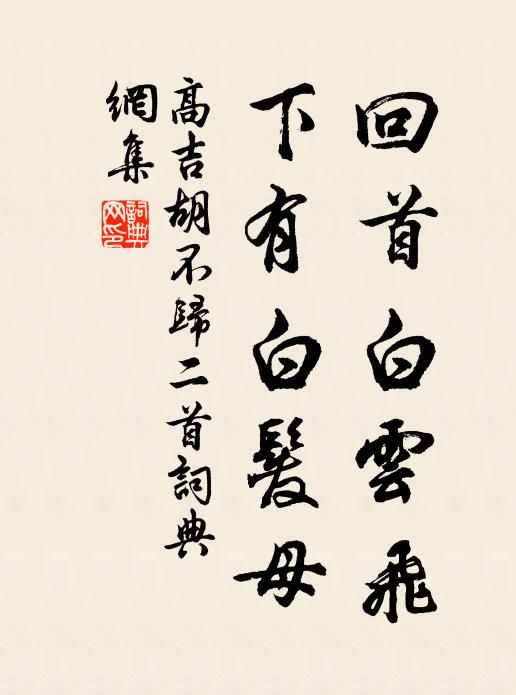 回首白雲飛
下有白髮母
高吉胡不歸二首詞典
網集
詞典
网印